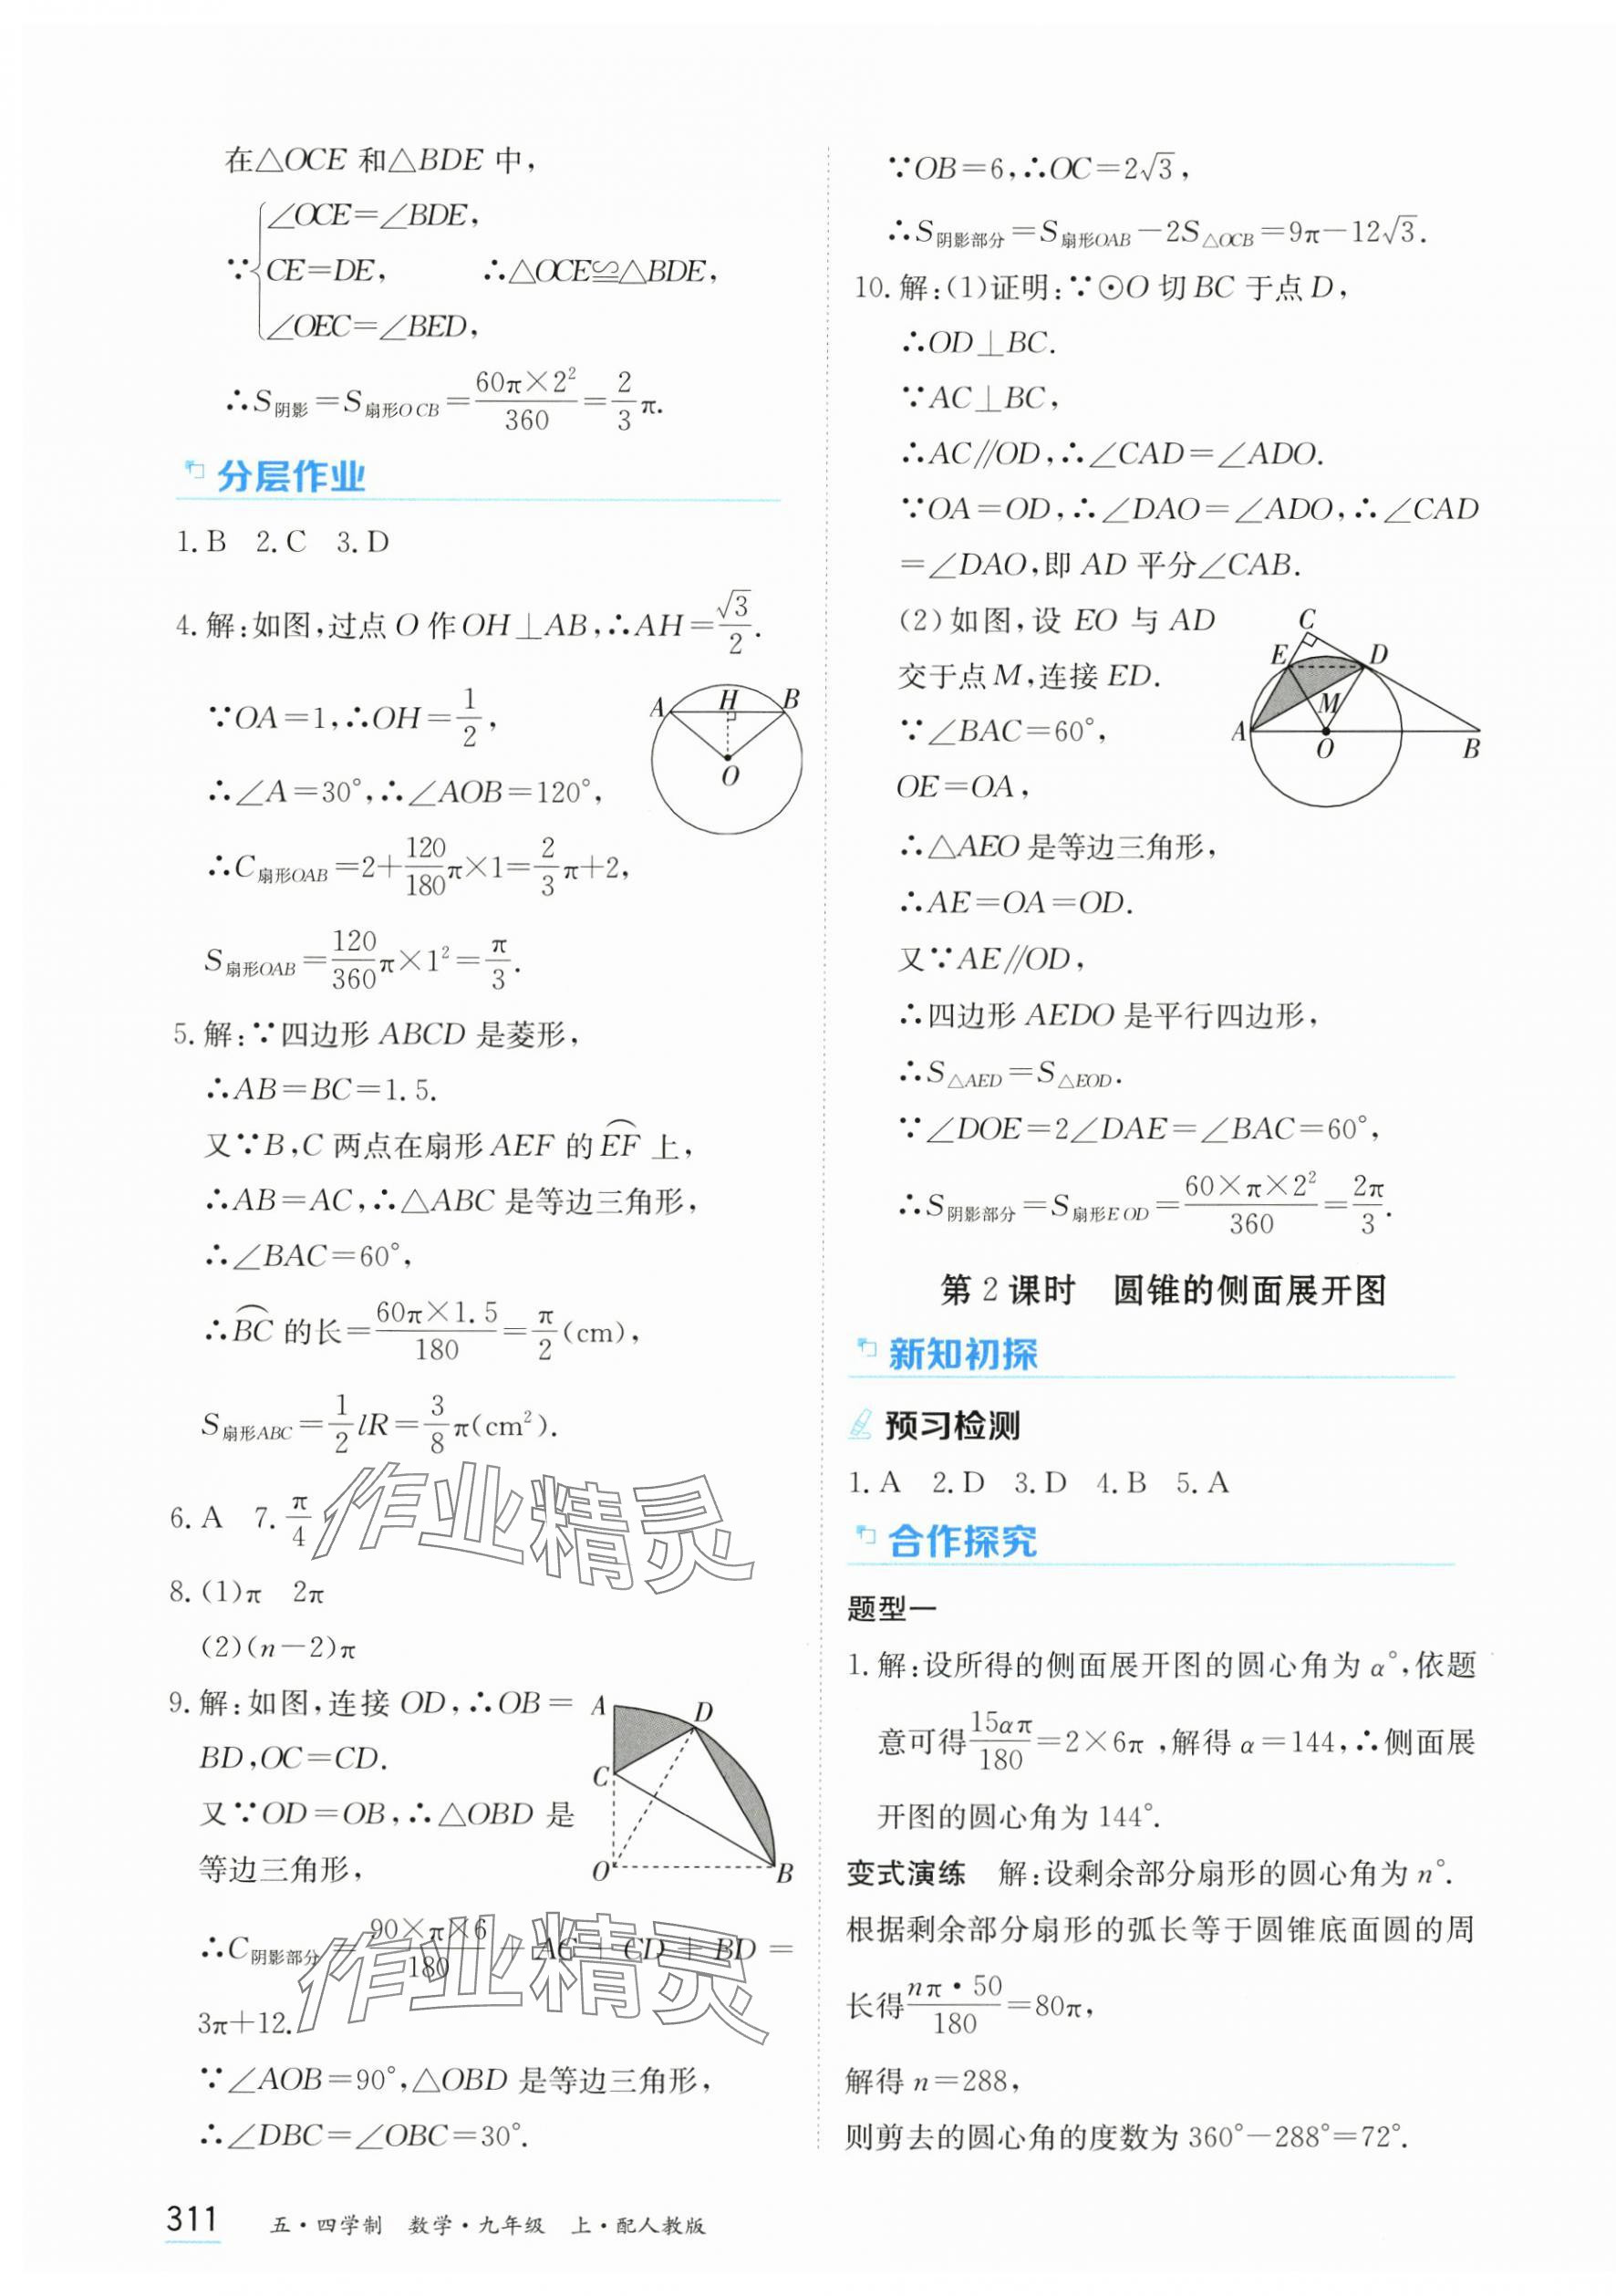 在△OCE 和△BDE 中,
∵{∠OCE=∠BDE,
CE=DE, ∴△OCE≌△BDE,
∠OEC=∠BED,
∴S阴影=S扇形OCB=60π×2²/360=2/3π.
分层作业
1.B 2.C 3.D
4.解:如图,过点O作OH⊥AB,∴AH=√3/2.
∵OA=1,∴OH=1/2,
∴∠A=30°,∴∠AOB=120°,
A H B
O
∴C扇形OAB=2+120/180π×1=2/3π+2,
S扇形OAB=120/360π×1²=π/3.
5.解:∵四边形ABCD是菱形,
∴AB=BC=1.5.
又∵B,C两点在扇形AEF的⌒EF上,
∴AB=AC,∴△ABC是等边三角形,
∴∠BAC=60°,
∴⌒BC的长=60π×1.5/180=π/2(cm),
S扇形ABC=1/2lR=3/8π(cm²).
6.A 7.π/4
作业精灵
8.(1)π 2π
(2)(n-2)π
9.解:如图,连接OD,∴OB=
BD,OC=CD.
又∵OD=OB,∴△OBD是
等边三角形,
A D
C
O B
∴C阴影部分=90×π×6/180+AC+CD+BD=
3π+12.
作业精灵
∵∠AOB=90°,△OBD是等边三角形,
∴∠DBC=∠OBC=30°.
∵OB=6,∴OC=2√3,
∴S阴影部分=S扇形OAB-2S△OCB=9π-12√3.
10.解:(1)证明:∵⊙O切BC于点D,
∴OD⊥BC.
∵AC⊥BC,
∴AC∥OD,∴∠CAD=∠ADO.
∵OA=OD,∴∠DAO=∠ADO,∴∠CAD
=∠DAO,即AD平分∠CAB.
(2)如图,设EO与AD
交于点M,连接ED.
∵∠BAC=60°,
OE=OA,
C
E D
M
A O B
∴△AEO是等边三角形,
∴AE=OA=OD.
又∵AE∥OD,
∴四边形AEDO是平行四边形,
∴S△AED=S△EOD.
∵∠DOE=2∠DAE=∠BAC=60°,
∴S阴影部分=S扇形EOD=60×π×2²/360=2π/3.
第2课时 圆锥的侧面展开图
新知初探
预习检测
1.A 2.D 3.D 4.B 5.A
合作探究
题型一
1.解:设所得的侧面展开图的圆心角为α°,依题
意可得15απ/180=2×6π,解得α=144,∴侧面展
开图的圆心角为144°.
变式演练 解:设剩余部分扇形的圆心角为n°.
根据剩余部分扇形的弧长等于圆锥底面圆的周
长得nπ·50/180=80π,
解得n=288,
则剪去的圆心角的度数为360°-288°=72°.
311 五·四学制 数学·九年级 上·配人教版